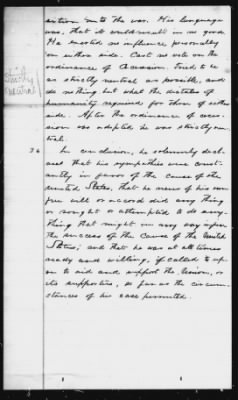 action into the war. His language
was, that it would result in no good.
He exerted no influence personally
on either side. Cast no vote on the
ordinance of Secession. Tried to be
as strictly neutral as possible, and
Strictly
neutral
do nothing but what the dictates of
humanity required for those of either
side. After the ordinance of seces-
sion was adopted he was strictly neu-
tral.
36 In conclusion, he solemnly decl-
ares that his sympathies were const-
antly in favor of the cause of the
United States, that he never of his own
free will or accord did any thing
or sought or attempted to do any-
thing that might in any way injure
the success of the cause of the United
States; and that he was at all times
ready and willing, if called to up-
on to aid and support the Union, or
its supporters, so far as the circum-
stances of his case permitted.